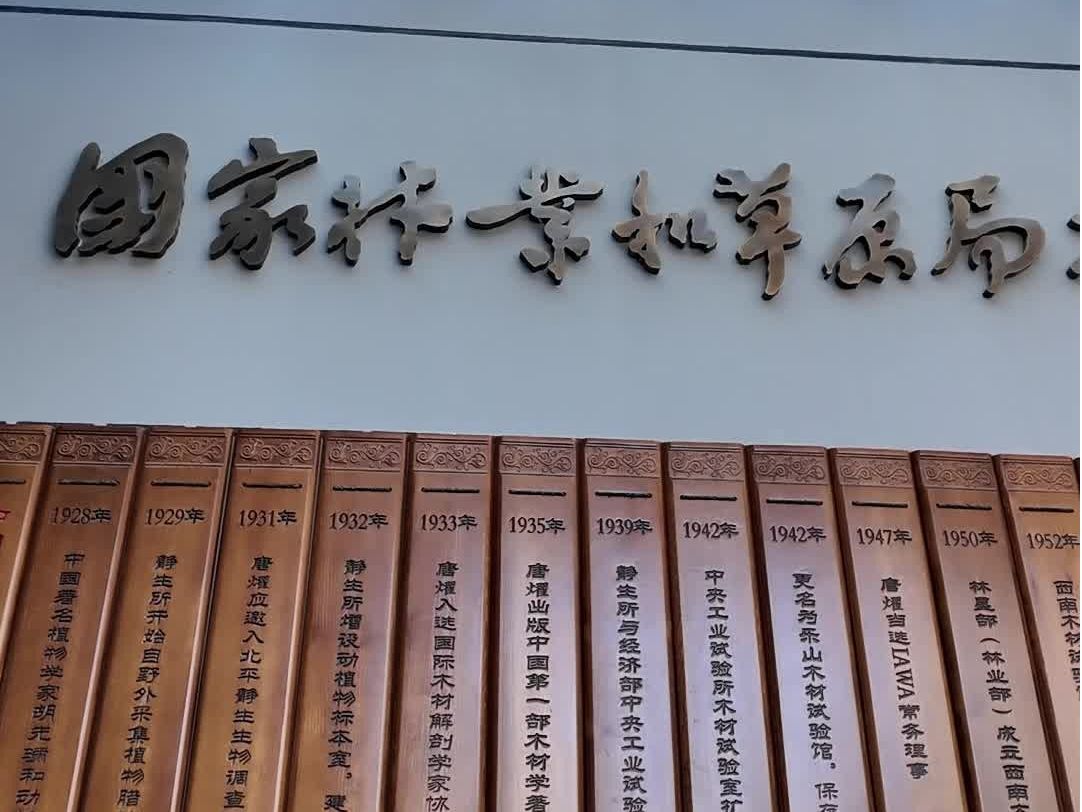 国家林业和草原局
1928年
中国著名植物学家胡先骕和动
1929年
静生所开始自野外采集植物腊
1931年
唐燿应邀入北平静生生物调查
1932年
静生所增设动植物标本室。建
1933年
唐燿入选国际木材解剖学家协
1935年
唐燿出版中国第一部木材学著
1939年
静生所与经济部中央工业试验
1942年
中央工业试验所木材试验室扩
1942年
更名为乐山木材试验馆。保存
1947年
唐燿当选IAWA常务理事
1950年
林垦部（林业部）成立西南
1952年
西南木材试验